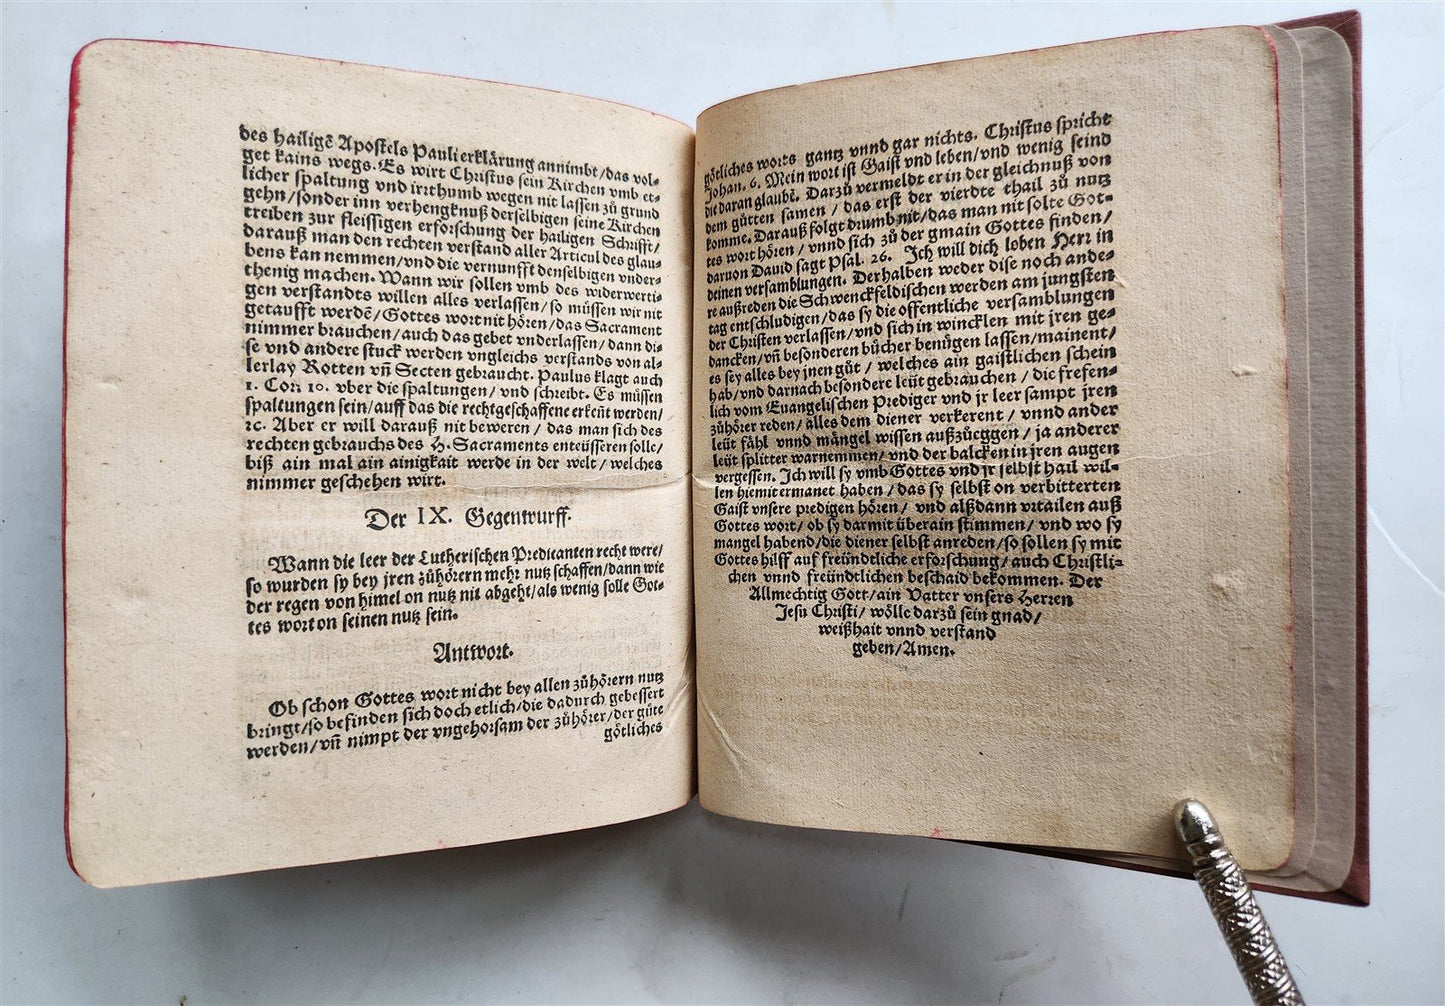 des hailigē Apostels Pauli erklärung annimbt/das vol-
get kains wegs. Es wirt Christus sein Kirchen vmb et-
licher spaltung vnd irrthumb wegen nit lassen zů grund
gehn/sonder inn verhengknuß derselbigen seine Kirchen
treiben zur fleissigen erforschung der hailigen Schrifft/
darauß man den rechten verstand aller Articul des glau-
bens kan nemmen/vnd die vernunfft denselbigen vnder-
thenig machen. Wann wir sollen vmb des widerwerti-
gen verstandts willen alles verlassen/so müssen wir nit
getaufft werdē/Gottes wort nit hören/das Sacrament
nimmer brauchen/auch das gebet vnderlassen/dann di-
se vnd andere stuck werden vngleichs verstands von al-
lerlay Rotten vñ Secten gebraucht. Paulus klagt auch
1. Cor. 10. vber die spaltungen/vnd schreibt. Es müssen
spaltungen sein/auff das die rechtgeschaffene erkeñt werden/
ꝛc. Aber er will darauß nit beweren/das man sich des
rechten gebrauchs des H. Sacraments enteüsseren solle/
biß ain mal ain ainigkait werde in der welt/welches
nimmer geschehen wirt.
Der IX. Gegenwurff.
Wann die leer der Lutherischen Predicanten recht were/
so wurden sy bey jren zůhörern mehr nutz schaffen/dann wie
der regen von himel on nutz nit abgeht/als wenig solle Got-
tes wort on seinen nutz sein.
Antwort.
Ob schon Gottes wort nicht bey allen zůhörern nutz
bringt/so befinden sich doch etlich/die dadurch gebessert
werden/vñ nimpt der vngehorsam der zůhörer/der güte
götliches
götliches worts gantz vnnd gar nichts. Christus spricht
Johan. 6. Mein wort ist Gaist vnd leben/vnd wenig seind
die daran glaubē. Darzů vermeldt er in der gleichnuß von
dem gůtten samen/das erst der vierdte thail zů nutz
komme. Darauß folgt drumb nit/das man nit solte Got-
tes wort hören/vnnd sich zů der gmain Gottes finden/
daruon Dauid sagt Psal. 26. Ich will dich loben Herr in
deinen versamblungen. Derhalben weder dise noch ande-
re außreden die Schwenckfeldischen werden am jungsten
tag entschludigen/das sy die offentliche versamblungen
der Christen verlassen/vnd sich in wincklen mit jren ge-
dancken/vñ besonderen bücher benügen lassen/mainent/
es sey alles bey jnen gůt/welches ain gaistlichen schein
hab/vnd darnach besondere leüt gebrauchen/die frefen-
lich vom Euangelischen Prediger vnd jr leer sampt jren
zůhörer reden/alles dem diener verkerent/vnnd ander
leüt fähl vnnd mängel wissen außzůeggen/ja anderer
leüt splitter warnemmen/vnd der balcken in jren augen
vergessen. Ich will sy vmb Gottes vnd jr selbst hail wil-
len hiemit ermanet haben/das sy selbst on verbitterten
Gaist vnsere predigen hören/vnd alßdann vrtailen auß
Gottes wort/ob sy darmit überain stimmen/vnd wo sy
mangel habend/die diener selbst anreden/so sollen sy mit
Gottes hilff auf freündtliche erforschung/auch Christli-
chen vnnd freündtlichen beschaid bekommen. Der
Allmechtig Gott/ain Vatter vnsers Herren
Jesu Christi/wölle darzů sein gnad/
weißhait vnnd verstand
geben/Amen.